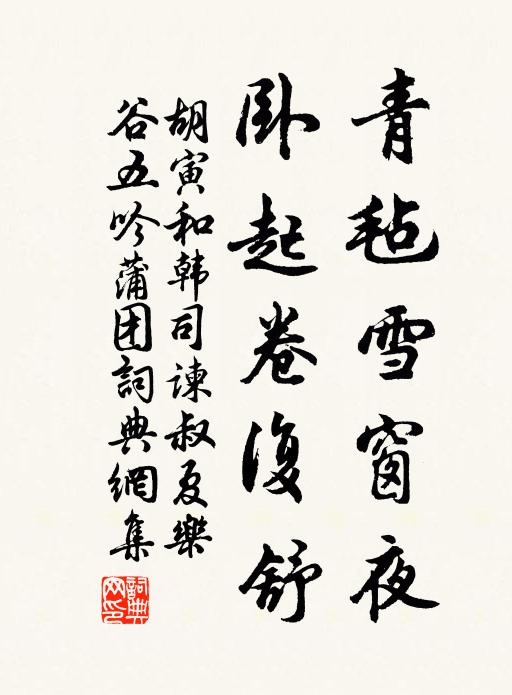 青毡雪窗夜
卧起卷復舒
胡寅和韩司谏叔夏樂
谷五吟蒲团詞典網集
詞典网印